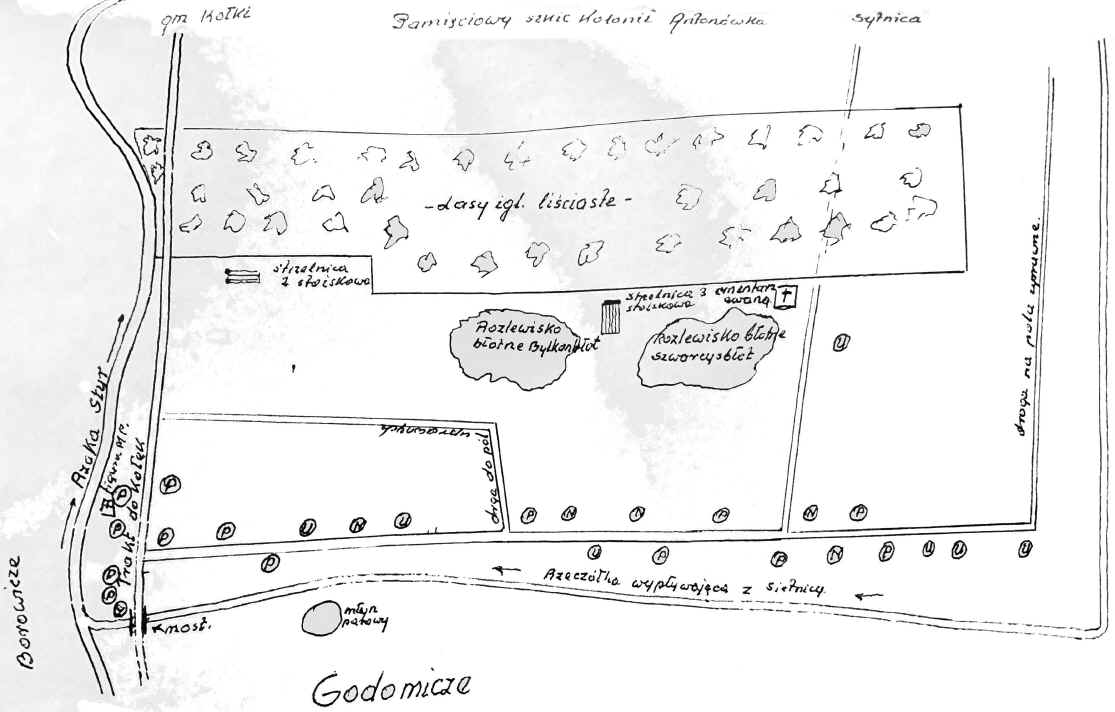 gm Kołki
Pamięciowy szkic Kolonii Antonówka
Sytnica
-Lasy igl. liściaste-
strzelnica
2 stoiskowa
strzelnica 3
stoiskowa
cmentarz
ewang.
Rozlewisko
błotne Bylkanbłot
Rozlewisko błotne
szworcysbłot
U
droga na pola uprawne.
Rzeka Styr
Figura M.P.
Trakt do Kołek
droga do pól
P
P
P
U
N
U
P
N
N
P
N
P
P
U
P
P
N
P
U
U
U
P
P
P
P
N
Rzeczółka wypływająca z Sietnicy.
most.
młyn
parowy
Borowicze
Godomicze